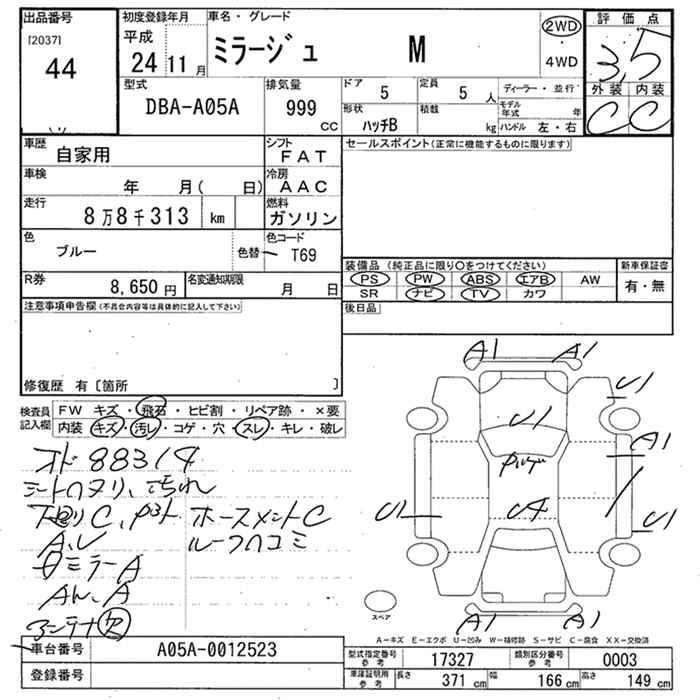 出品番号
[2037]
44
初度登録年月
平成
24 11 月
車名・グレード
ミラージュ M
2WD
・
4WD
評価点
3,5
外装 内装
C C
型式
DBA-A05A
排気量
999 cc
ドア
5
定員
5 人
ディーラー・並行
形状
ハッチB
積載
kg
モデル年式 年
ハンドル 左・右
車歴
自家用
シフト
FAT
車検
年 月( 日)
冷房
AAC
走行
8万8千313 km
燃料
ガソリン
色
ブルー
色替
色コード
T69
R券
8,650 円
名変通知期限
月 日
セールスポイント(正常に機能するものに限ります)
装備品 (純正品に限り○をつけてください)
PS PW ABS エアB AW
SR ナビ TV カワ
新車保証書
有・無
後日品
注意事項申告欄(不具合内容等は具体的に記入して下さい)
修復歴 有〔箇所 〕
検査員記入欄
FW キズ・飛石・ヒビ割・リペア跡・×要
内装 キズ・汚レ・コゲ・穴・スレ・キレ・破レ
オド 88314
シートヘタリ、汚れ
下廻りC、
ホースメントC
A,U
ルーフヘコミ
ミラーA
アンテナ欠
A1 A1
U1
U1
A1
U4
U1
U1
A1 A1
スペア
A−キズ E−エクボ U−凹み W−補修跡 S−サビ C−腐食 XX−交換済
車台番号
A05A-0012523
登録番号
型式指定番号
参考
17327
類別区分番号
参考
0003
車庫証明用
参考
長さ
371 cm
幅
166 cm
高さ
149 cm